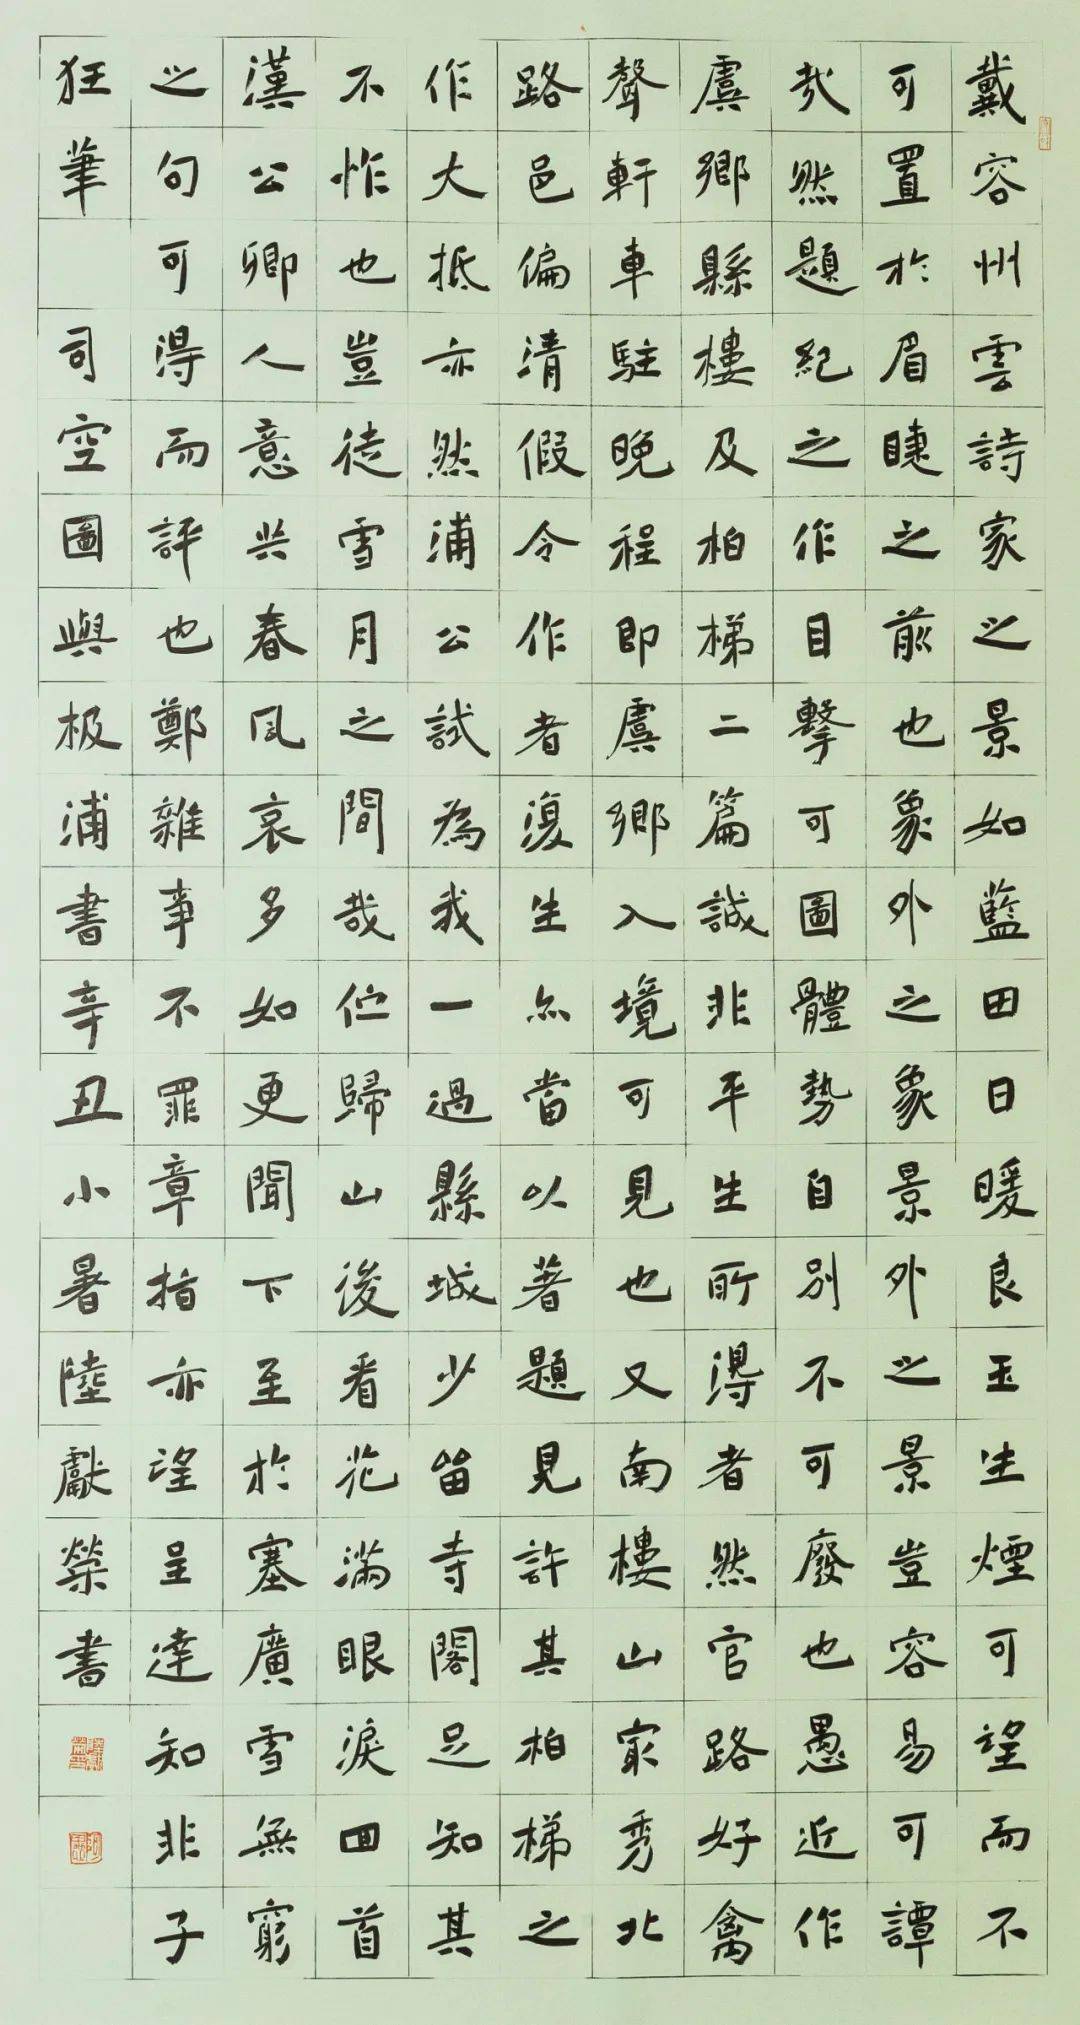 戴容州雲詩家之景如藍田日暖良玉生煙可望而不
可置於眉睫之前也象外之象景外之景豈容易可譚
哉然題紀之作目擊可圖體勢自別不可廢也愚近作
虞鄉縣樓及柏梯二篇誠非平生所得者然官路好禽
聲軒車駐晚程即虞鄉入境可見也又南樓山家秀北
路邑偏清假令作者復生亦當以著題見許其柏梯之
作大抵亦然浦公試為我一過縣城少留寺閣足知其
不怍也豈徒雪月之間哉佇歸山後看花滿眼淚回首
漢公卿人意共春風哀多如更聞下至於塞廣雪無窮
之句可得而評也鄭雜事不罪章指亦望呈達知非子
狂筆 司空圖與极浦書辛丑小暑陸獻榮書